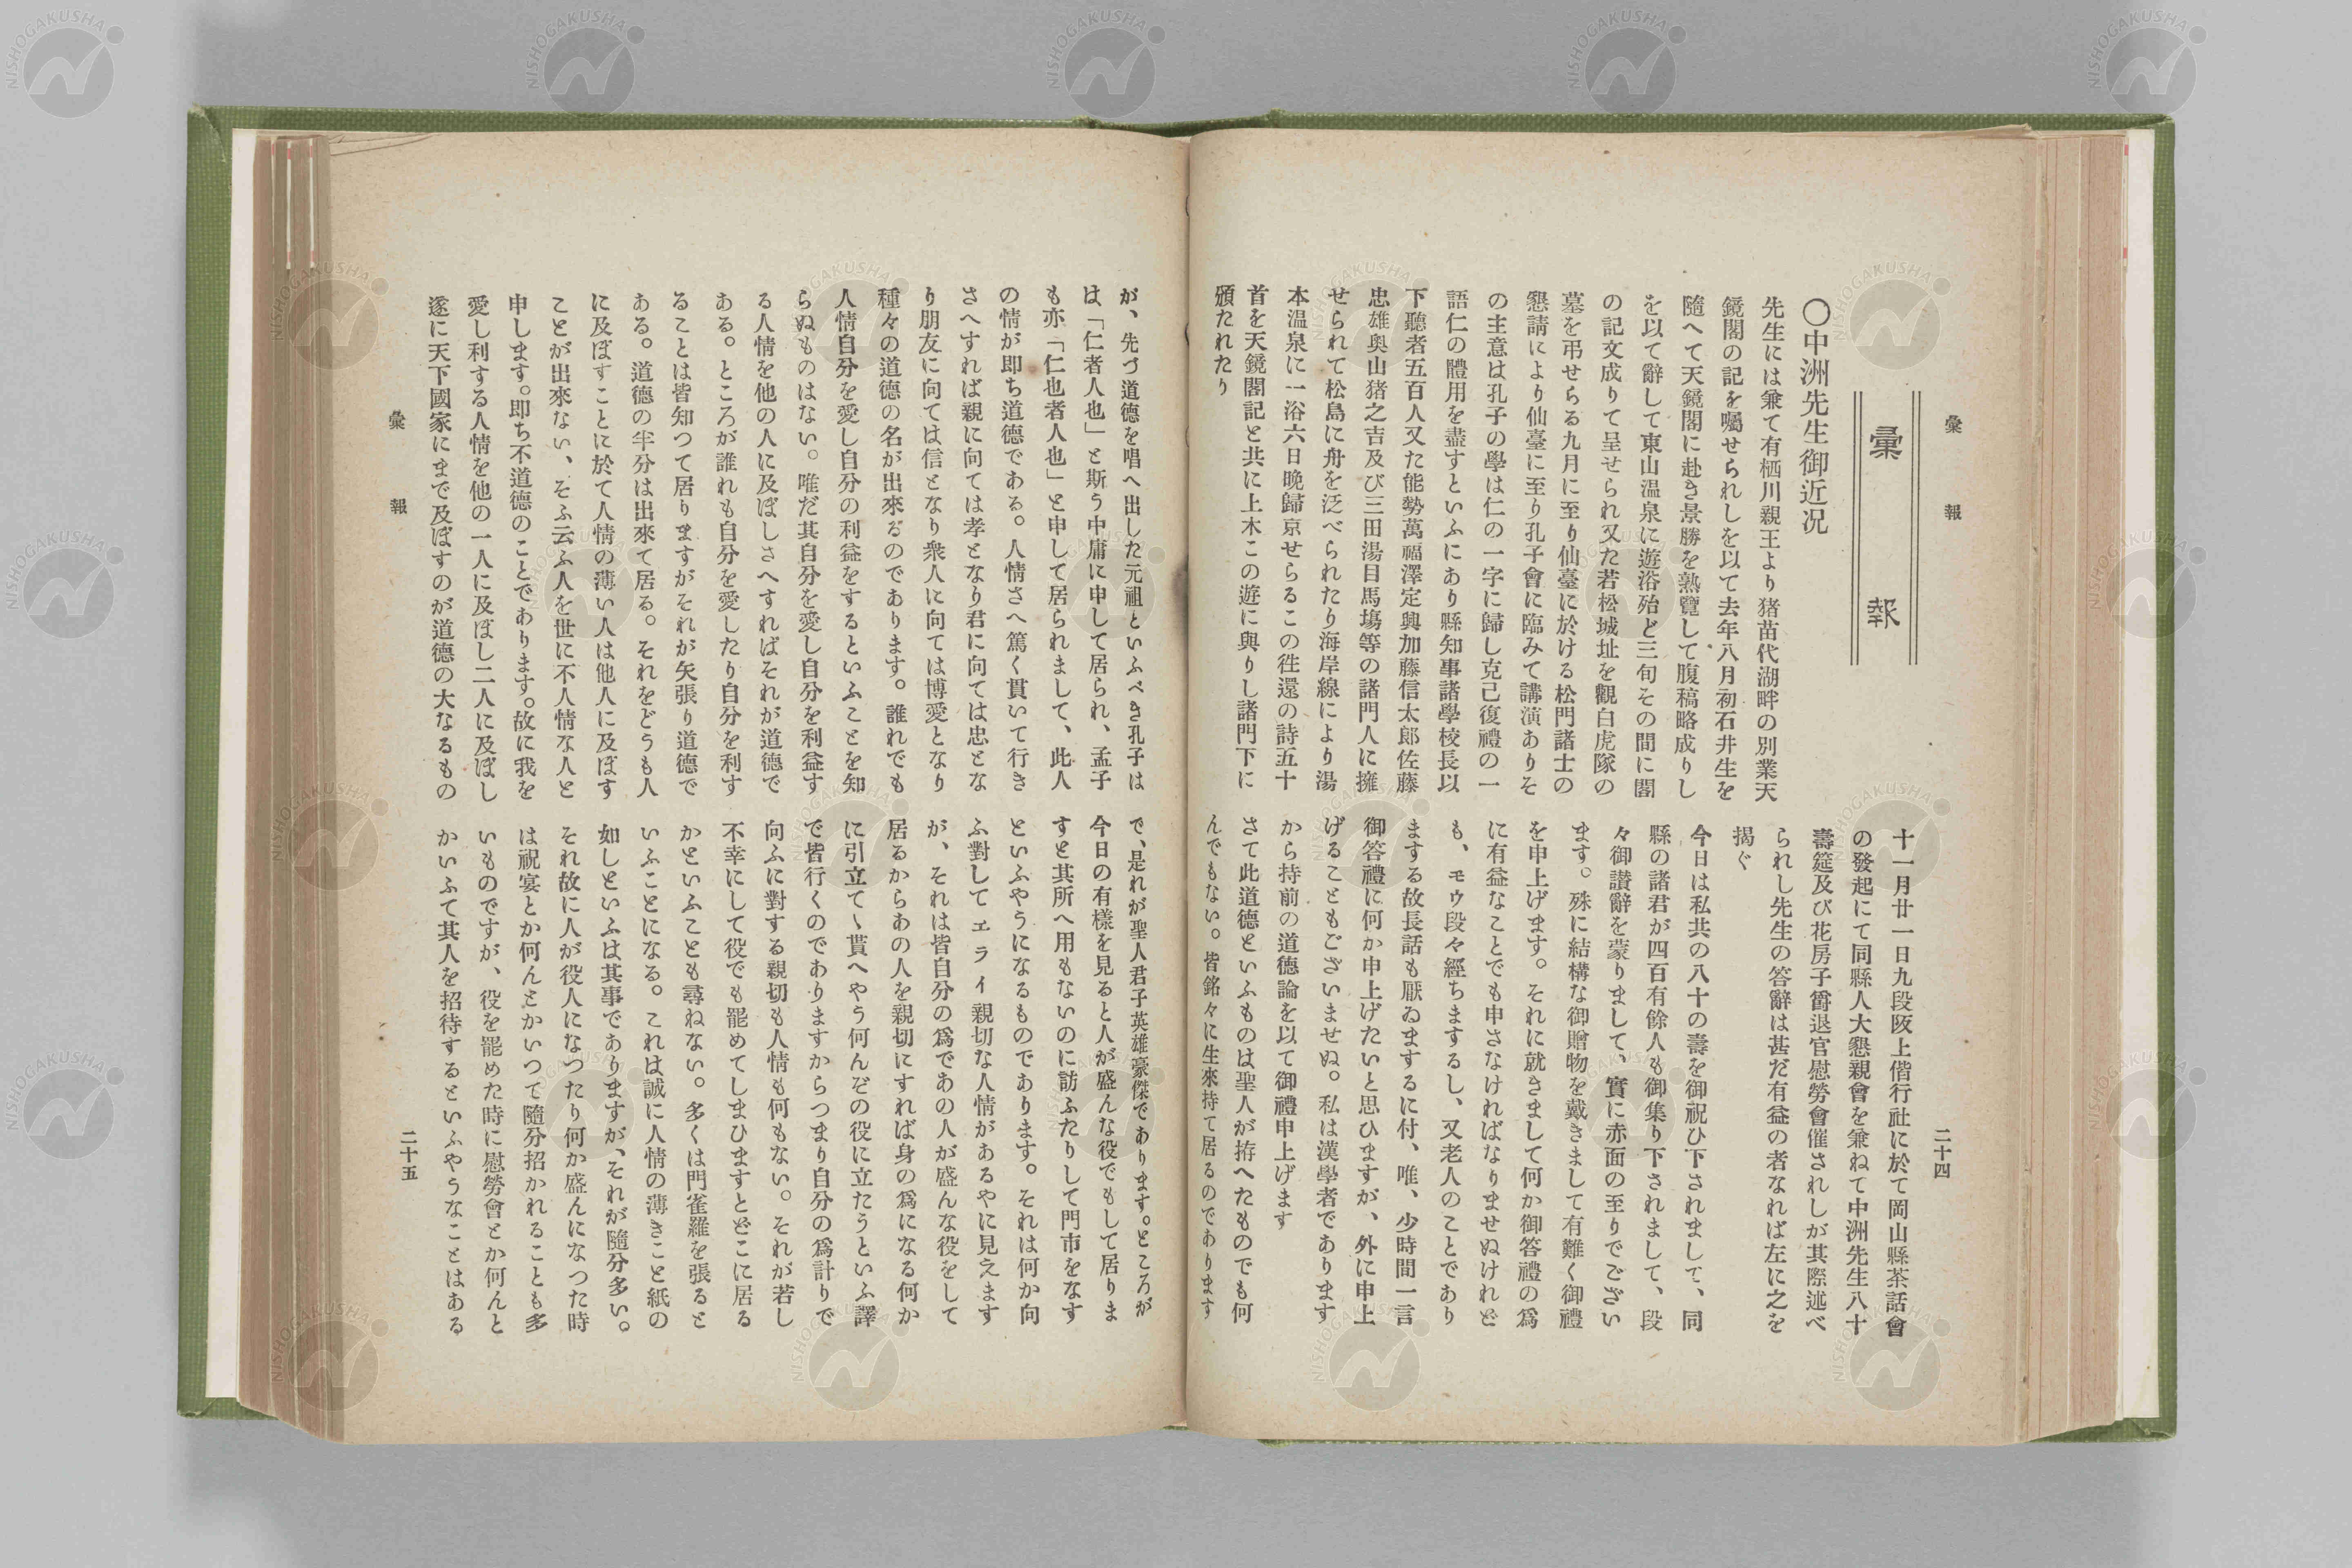 彙報
二十四
彙報
〇中洲先生御近況
先生には兼て有栖川親王より猪苗代湖畔の別業天
鏡閣の記を囑せられしを以て去年八月初石井生を
隨へて天鏡閣に赴き景勝を熟覽して腹稿略成りし
を以て辭して東山温泉に遊浴殆ど三旬その間に閣
の記文成りて呈せられ又た若松城址を觀白虎隊の
墓を弔せらる九月に至り仙臺に於ける松門諸士の
懇請により仙臺に至り孔子會に臨みて講演ありそ
の主意は孔子の學は仁の一字に歸し克己復禮の一
語仁の體用を盡すといふにあり縣知事諸學校長以
下聽者五百人又た能勢萬福澤定興加藤信太郎佐藤
忠雄奥山猪之吉及び三田湯目馬塲等の諸門人に擁
せられて松島に舟を泛べられたり海岸線により湯
本温泉に一浴六日晩歸京せらるこの徃還の詩五十
首を天鏡閣記と共に上木この遊に與りし諸門下に
頒たれたり
十一月廿一日九段阪上偕行社に於て岡山縣茶話會
の發起にて同縣人大懇親會を兼ねて中洲先生八十
壽筵及び花房子爵退官慰勞會催されしが其際述べ
られし先生の答辭は甚だ有益の者なれば左に之を
揭ぐ
今日は私共の八十の壽を御祝ひ下されまして、同
縣の諸君が四百有餘人も御集り下されまして、段
々御讃辭を蒙りまして、實に赤面の至りでござい
ます。殊に結構な御贈物を戴きまして有難く御禮
を申上げます。それに就きまして何か御答禮の爲
に有益なことでも申さなければなりませぬけれど
も、モウ段々經ちまするし、又老人のことであり
まする故長話も厭ゐまするに付、唯、少時間一言
御答禮に何か申上げたいと思ひますが、外に申上
げることもございませぬ。私は漢學者であります
から持前の道德論を以て御禮申上げます
さて此道德といふものは聖人が拵へたものでも何
んでもない。皆銘々に生來持て居るのであります
が、先づ道德を唱へ出した元祖といふべき孔子は
は、「仁者人也」と斯う中庸に申して居られ、孟子
も亦「仁也者人也」と申して居られまして、此人
の情が即ち道德である。人情さへ篤く貫いて行き
さへすれば親に向ては孝となり君に向ては忠とな
り朋友に向ては信となり衆人に向ては博愛となり
種々の道德の名が出來るのであります。誰れでも
人情自分を愛し自分の利益をするといふことを知
らぬものはない。唯だ其自分を愛し自分を利益す
る人情を他の人に及ぼしさへすればそれが道德で
ある。ところが誰れも自分を愛したり自分を利す
ることは皆知つて居りますがそれが矢張り道德で
ある。道德の半分は出來て居る。それをどうも人
に及ぼすことに於て人情の薄い人は他人に及ぼす
ことが出來ない、そふ云ふ人を世に不人情な人と
申します。即ち不道德のことであります。故に我を
愛し利する人情を他の一人に及ぼし二人に及ぼし
遂に天下國家にまで及ぼすのが道德の大なるもの
で、是れが聖人君子英雄豪傑であります。ところが
今日の有樣を見ると人が盛んな役でもして居りま
すと其所へ用もないのに訪ふたりして門市をなす
といふやうになるものであります。それは何か向
ふ對してエライ親切な人情があるやに見えます
が、それは皆自分の爲であの人が盛んな役をして
居るからあの人を親切にすれば身の爲になる何か
に引立てゝ貰へやう何んぞの役に立たうといふ譯
で皆行くのでありますからつまり自分の爲計りで
向ふに對する親切も人情も何もない。それが若し
不幸にして役でも罷めてしまひますとどこに居る
かといふことも尋ねない。多くは門雀羅を張ると
いふことになる。これは誠に人情の薄きこと紙の
如しといふは其事でありますが、それが隨分多い。
それ故に人が役人になつたり何か盛んになつた時
は祝宴とか何んとかいつて隨分招かれることも多
いものですが、役を罷めた時に慰勞會とか何んと
かいふて其人を招待するといふやうなことはある
彙報
二十五